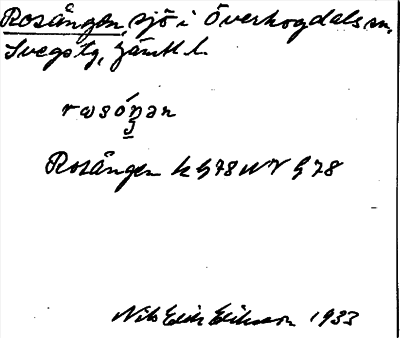 Rosången, sjö i Överhogdals sn,
Svegs tg, Jämtl. l.
rasóŋən
Rosången k G78 NV G 78
Nils Erik Eriksson 1933